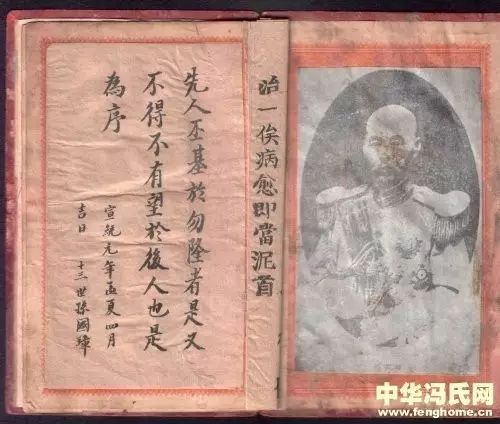 治一俟病愈即當泥首
先人丕基於勿墜者是又
不得不有望於後人也是
為序
宣統元年孟夏四月
吉日 十三世孫國璋
中华冯氏网
www.fenghome.cn